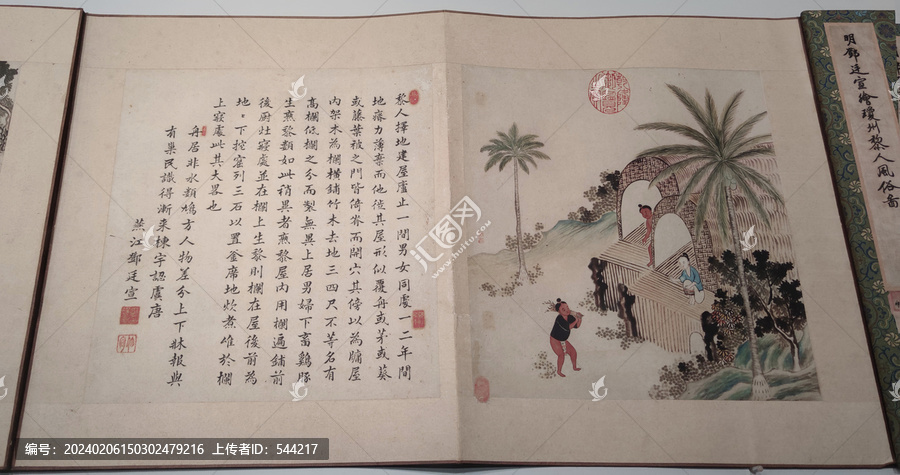 明鄧廷宣繪瓊州黎人風俗畫
黎人擇地建屋廬止一間男女同處一二年間
地瘠力薄棄而他徙其屋形似覆舟或茅或葵
或藤葉被之門皆倚脊而開穴其傍以為牖屋
內架木為欄橫鋪竹木去地三四尺不等名有
高欄低欄之分而製無異上居男婦下畜雞豚
生熟黎類如此稍異者熟黎屋內用欄過鋪前
後廚灶寢處並在欄上生黎則欄在屋後前為
地下挖窟列三石以置釜席地炊煮惟於欄
上寢處此其大畧也
舟居非水類鳩方人物差分上下牀報與
有巢民識得漸來棟宇認虞唐
燕江鄧廷宣
汇图网
编号：20240206150302479216 上传者ID：544217